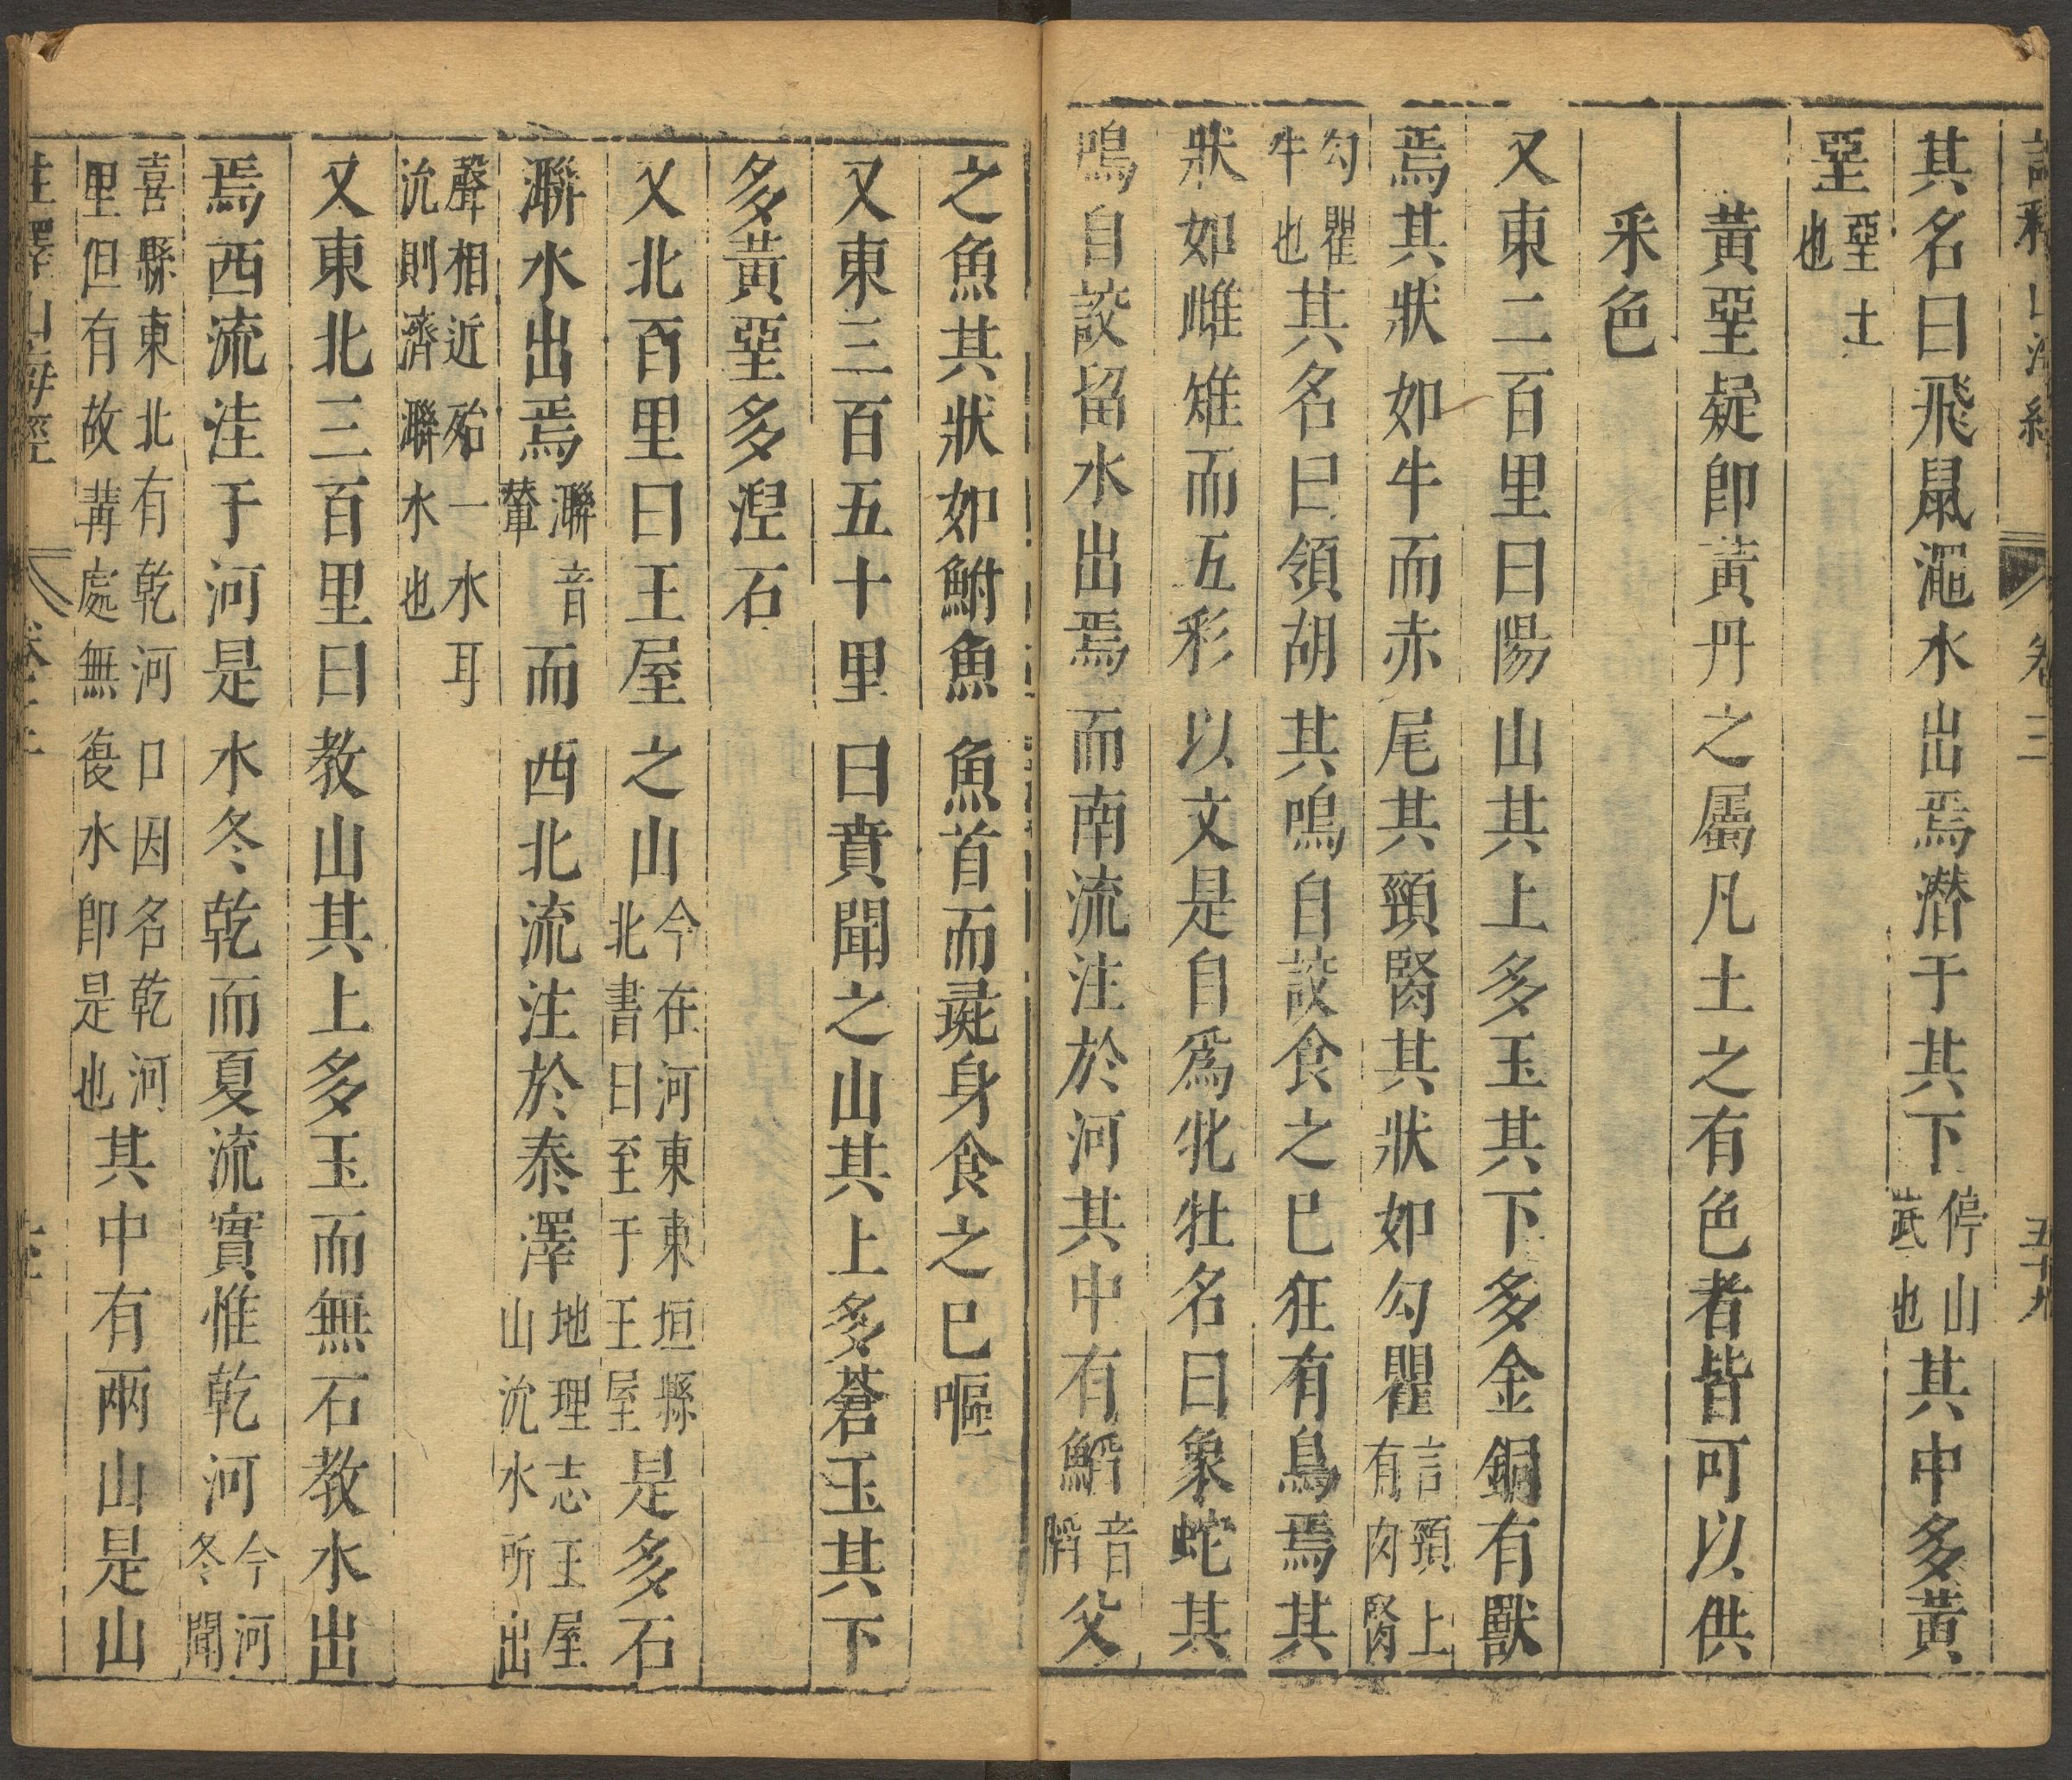 其名曰飛鼠澠水出焉潜于其下停山底也其中多黃
堊堊土也
黃堊疑即黃丹之屬凡土之有色者皆可以供
采色
又東二百里曰陽山其上多玉其下多金銅有獸
焉其狀如牛而赤尾其頸䏰其狀如勾瞿言頸上有肉䏰
勾瞿牛也其名曰領胡其鳴自詨食之已狂有鳥焉其
狀如雌雉而五彩以文是自爲牝牡名曰象蛇其
鳴自詨留水出焉而南流注於河其中有䱤音䐄父
之魚其狀如鮒魚魚首而彘身食之已嘔
又東三百五十里曰賁聞之山其上多蒼玉其下
多黃堊多涅石
又北百里曰王屋之山今在河東東垣縣北書曰至于王屋是多石
㶌水出焉㶌音輦而西北流注於泰澤地理志王屋山沇水所出
聲相近殆一水耳沇則濟㶌水也
又東北三百里曰教山其上多玉而無石教水出
焉西流注于河是水冬乾而夏流實惟乾河今河冬聞
喜縣東北有乾河口因名乾河里但有故溝處無復水即是也其中有兩山是山